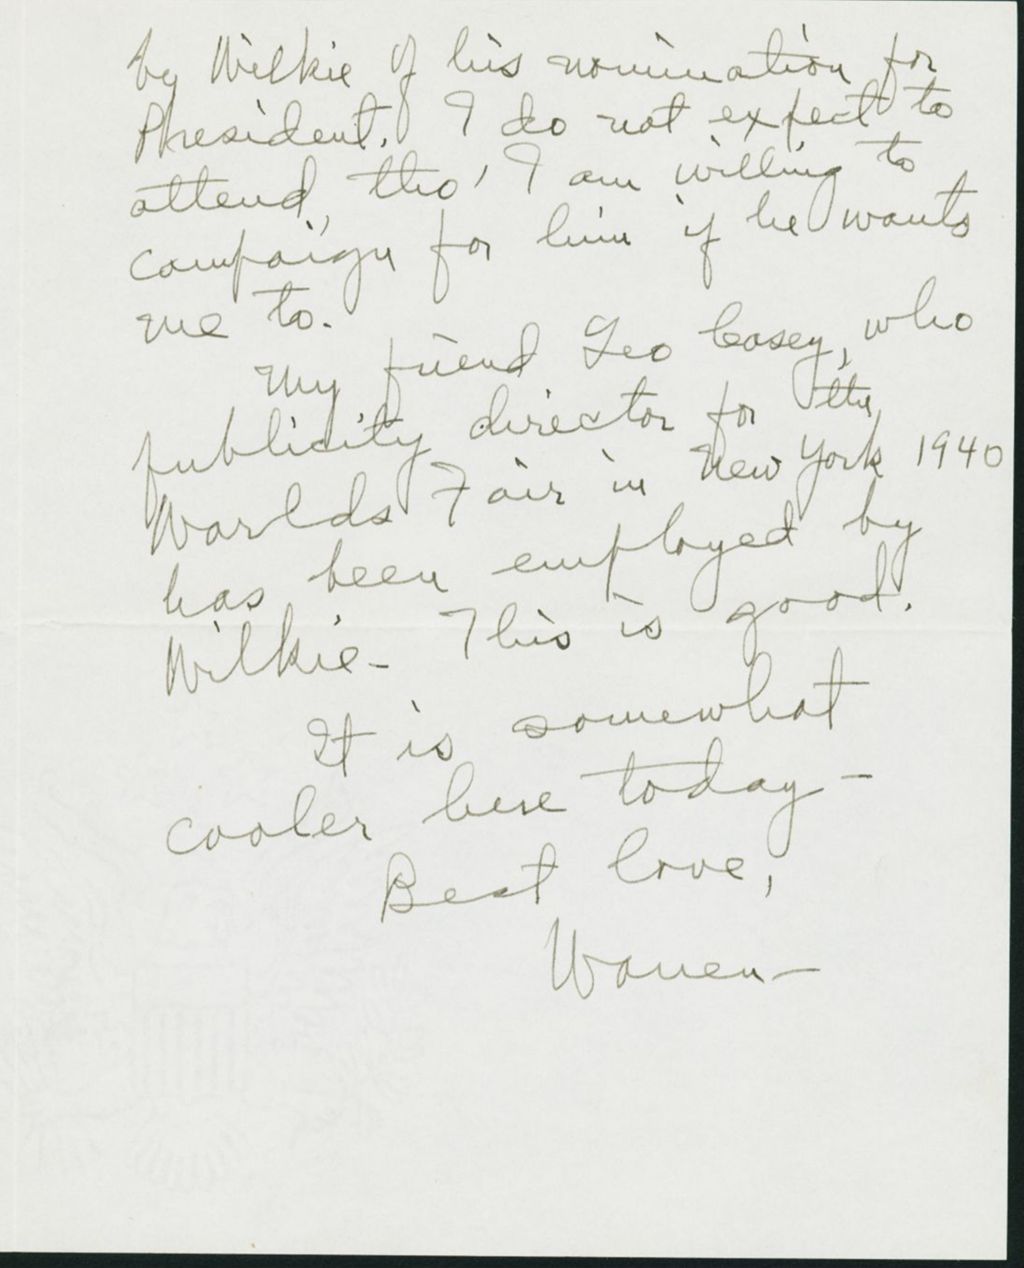 by Wilkie of his nomination for
President. I do not expect to
attend, tho' I am willing to
campaign for him if he wants
me to.
My friend Geo Casey, who
publicity director for the
Worlds Fair in New York 1940
has been employed by
Wilkie - This is good.
It is somewhat
cooler here today -
Best love,
Warren -